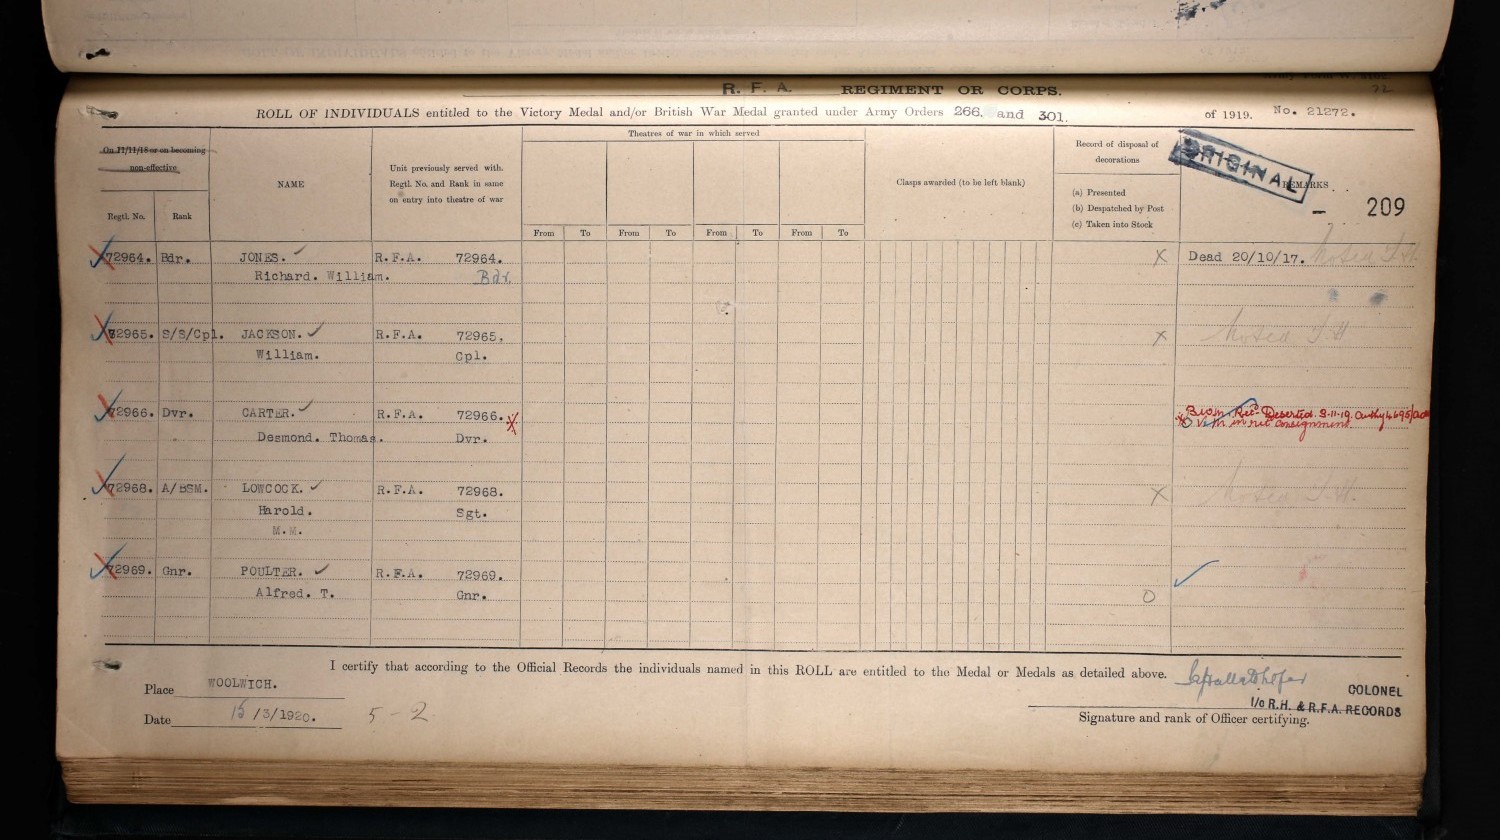 R. F. A. REGIMENT OR CORPS.
ROLL OF INDIVIDUALS entitled to the Victory Medal and/or British War Medal granted under Army Orders 266. and 301. of 1919. No. 21272.
On 11/11/18 or on becoming non-effective
Regtl. No.
Rank
NAME
Unit previously served with. Regtl. No. and Rank in same on entry into theatre of war
Theatres of war in which served
From To From To From To From To
Clasps awarded (to be left blank)
Record of disposal of decorations
(a) Presented
(b) Despatched by Post
(c) Taken into Stock
ORIGINAL
REMARKS
- 209
72964. Bdr. JONES. R.F.A. 72964. X Dead 20/10/17. Noted
Richard. William. Bdr.
72965. S/S/Cpl. JACKSON. R.F.A. 72965. X Noted
William. Cpl.
72966. Dvr. CARTER. R.F.A. 72966. Deserted. 3-11-19.
Desmond. Thomas. Dvr.
72968. A/BSM. LOWCOCK. R.F.A. 72968. X Noted
Harold. Sgt.
M.M.
72969. Gnr. POULTER. R.F.A. 72969.
Alfred. T. Gnr. O
I certify that according to the Official Records the individuals named in this ROLL are entitled to the Medal or Medals as detailed above.
Place WOOLWICH.
Date 15/3/1920. 5-2
COLONEL
I/o R.H. & R.F.A. RECORDS
Signature and rank of Officer certifying.